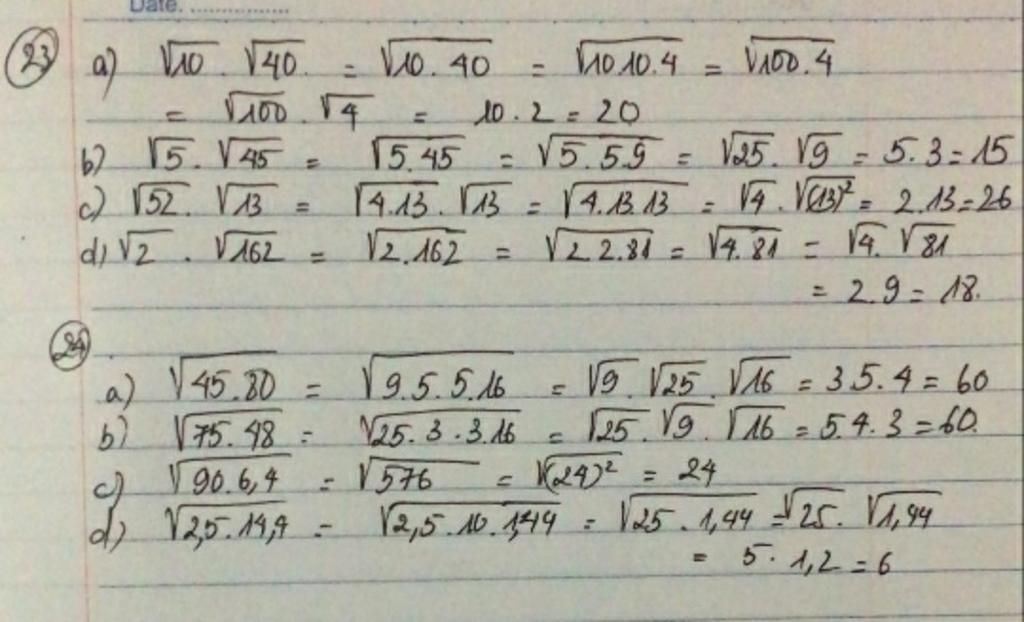 Date. ................
23 a) √10 . √40 = √10.40 = √10.10.4 = √100.4
= √100 . √4 = 10.2 = 20
b) √5 . √45 = √5.45 = √5.5.9 = √25 . √9 = 5.3 = 15
c) √52 . √13 = √4.13 . √13 = √4.13.13 = √4 . √(13)² = 2.13 = 26
d) √2 . √162 = √2.162 = √2.2.81 = √4.81 = √4 . √81
= 2.9 = 18.
24
a) √45.80 = √9.5.5.16 = √9 . √25 . √16 = 3.5.4 = 60
b) √75.48 = √25.3.3.16 = √25 . √9 . √16 = 5.4.3 = 60.
c) √90.6,4 = √576 = √(24)² = 24
d) √2,5.14,4 = √2,5.10.1,44 = √25.1,44 = √25 . √1,44
= 5.1,2 = 6